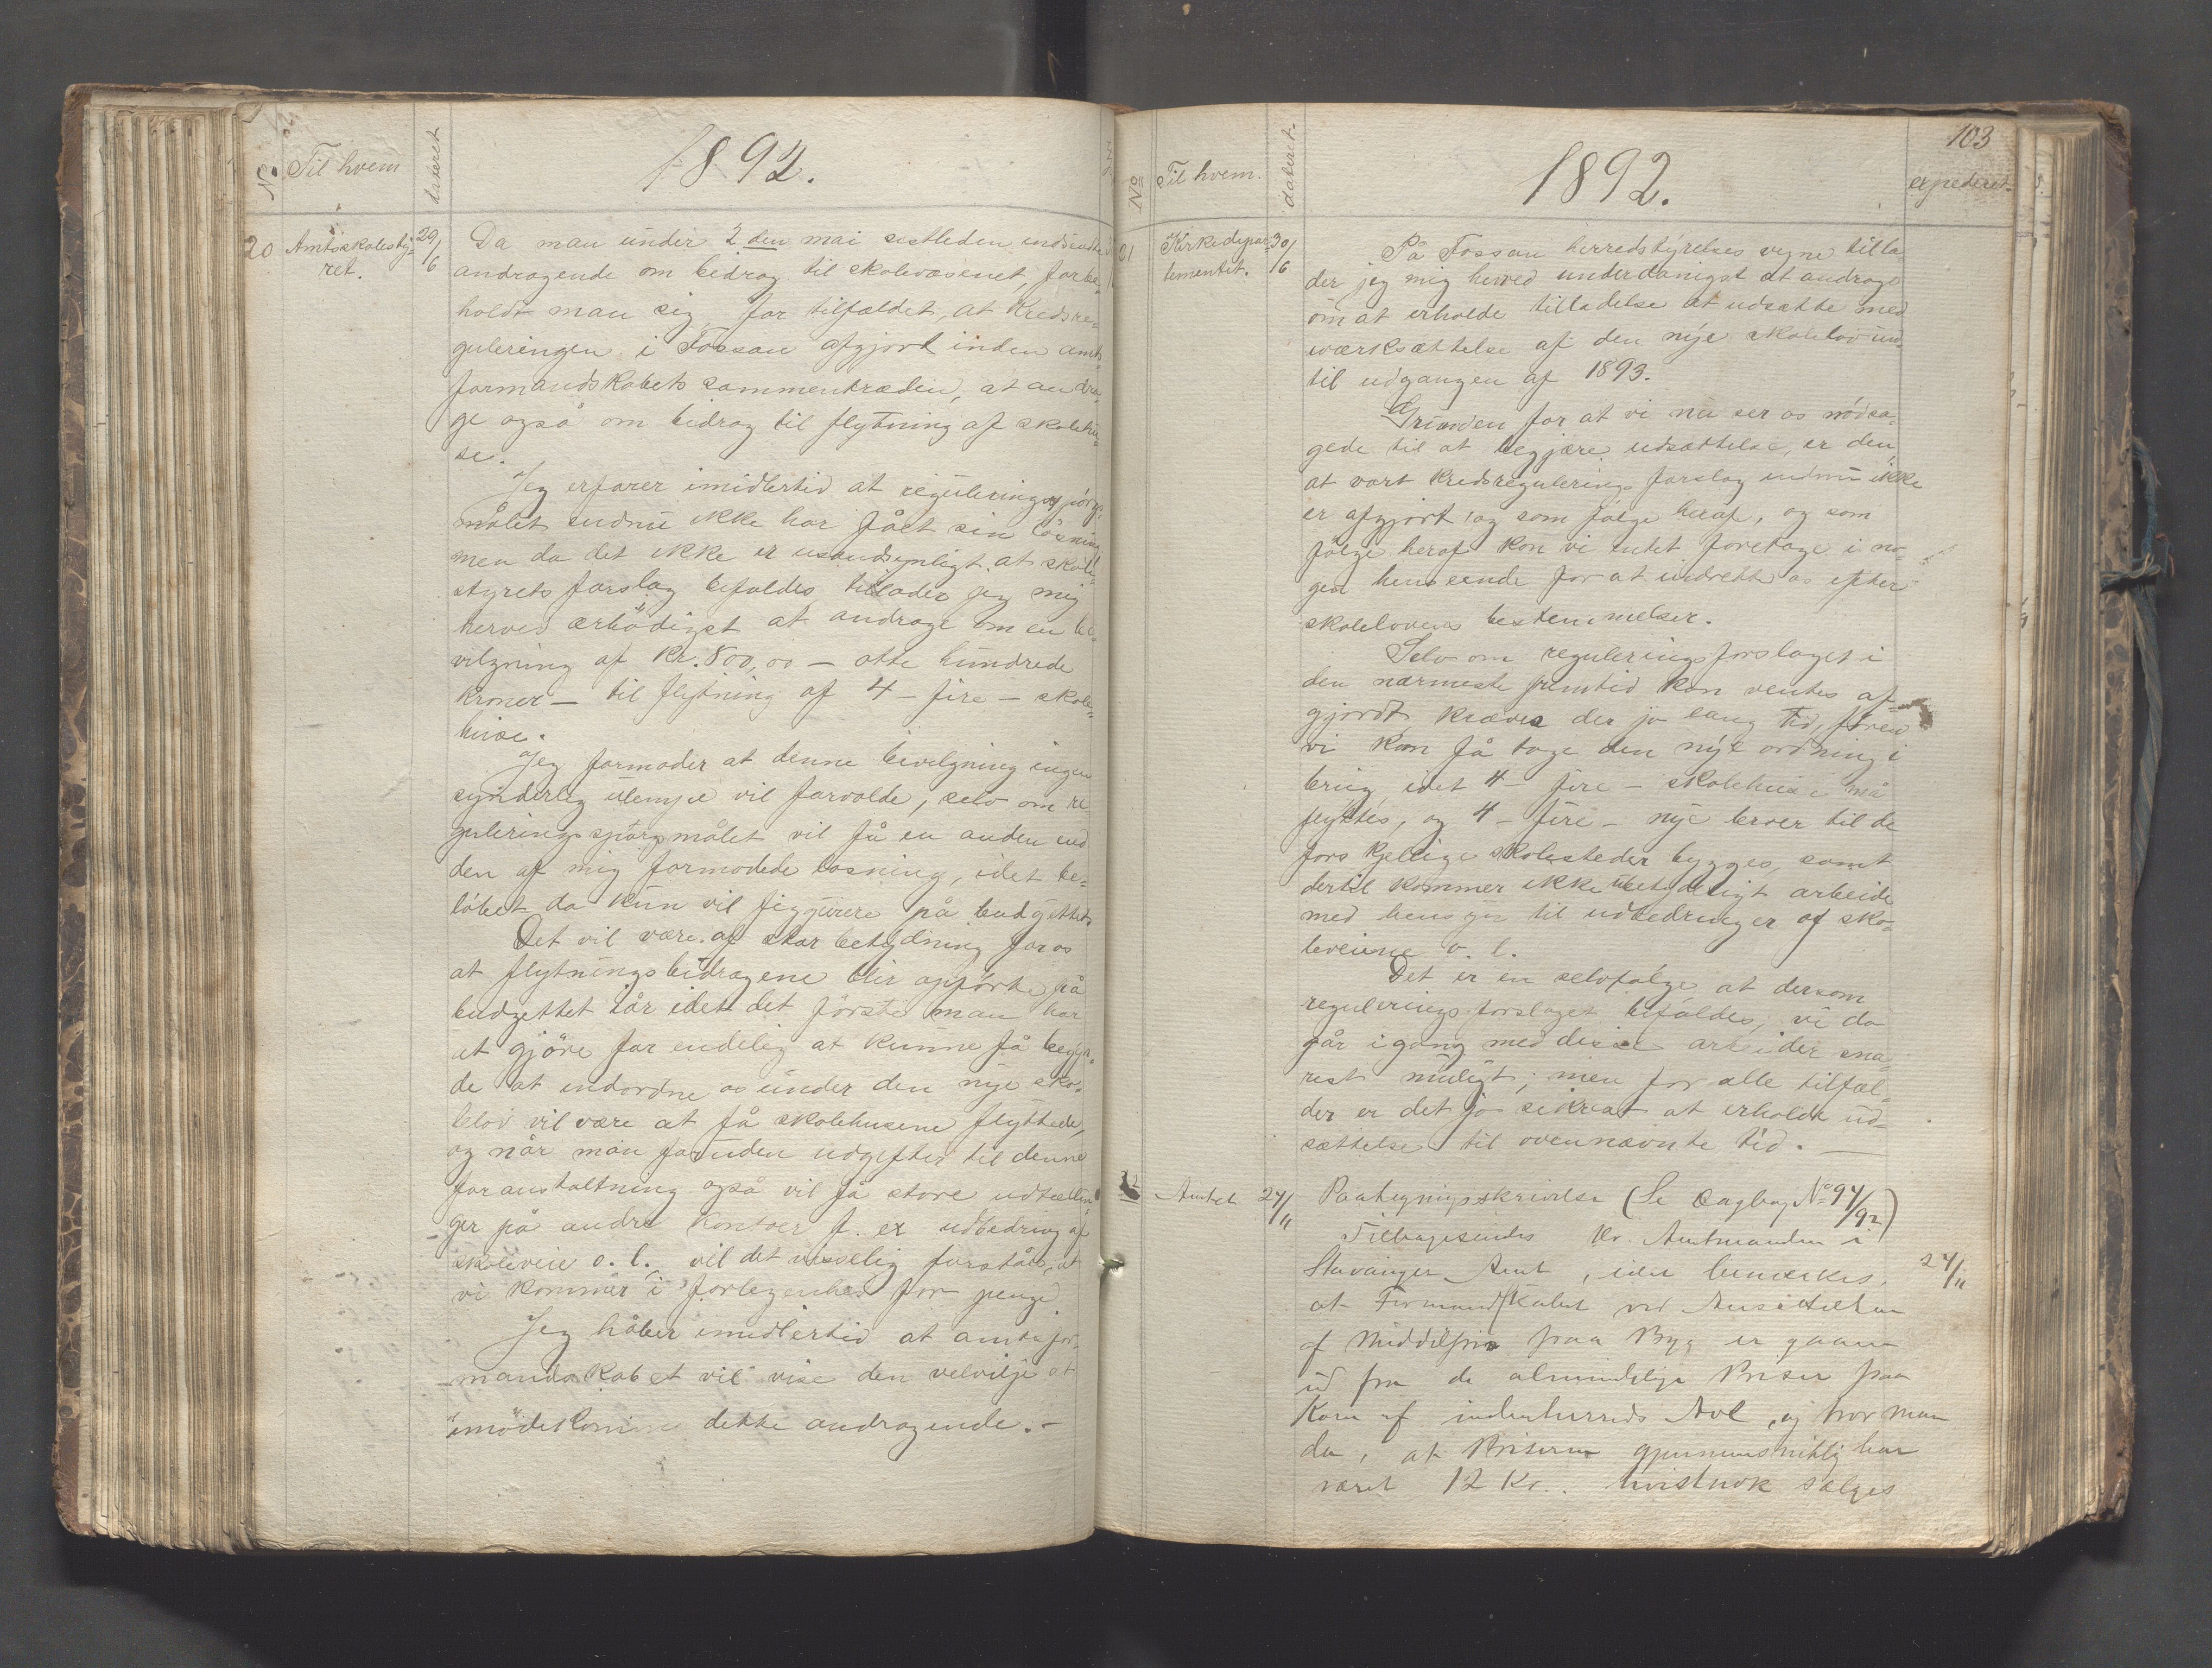 No. Til hvem dateret 1892.
20 Amtsskolesty= 29/6 Da man under 2den mai sistleden indsendte
ret. andragende om bidrag til skolevæsenet, forbe=
holdt man sig, for tilfældet, at Kredsre=
guleringen i Fossan afgjort inden amts
formandskabets sammentræden, at andra=
ge også om bidrag til flytning af skolehu=
se.
Jeg erfarer imidlertid at reguleringsspörgs=
målet endnu ikke har fået sin lösning
men da det ikke er usandsynligt at skole=
styrets forslag bifaldes tillader jeg mig
herved ærbödigst at andrage om en be=
vilgning af Kr. 800,00 – otte hundrede
kroner – til flytning af 4 – fire – skole=
huse.
Jeg formoder at denne bevilgning ingen
synderlig ulempe vil forvolde, selv om re=
guleringsspörgsmålet vil få en anden end
den af mig formodede løsning, idet be=
löbet da kun vil figgurere på budgettet.
Det vil være af stor betydning for os
at flytningsbidragene blir opförte på
budgettet iår idet det förste man har
at gjöre for endelig at kunne få begyn=
de at indordne os under den nye sko=
lelov vil være at få skolehusene flyttede,
og når man foruden udgifter til denne
foranstaltning også vil få store udtællin
ger på andre kontoer f. ex udbedring af
skoleveie o. l. vil det visselig forståes, at
vi kommer i forlegenhed for penge
Jeg håber imidlertid at amtsfor=
mandskabet vil vise den velvilje at
imödekomme dette andragende. –
No Til hvem. dateret. 1892. 103
expederet.
21 Kirkedepar= 30/6 På Fossan herredstyrelses vegne tilla
tementet. der jeg mig herved underdanigst at andrage
om at erholde tilladelse at udsætte med
iværksættelse af den nye skolelov ind=
til udgangen af 1893.
Grunden for at vi nu ser os nödsa=
gede til at begjære udsættelse, er den,
at vort kredsregulerings forslag endnu ikke
er afgjort og som fölge heraf, og som
fölge heraf kan vi intet foretage i no=
gen henseende for at indrette os efter
skolelovens bestemmelser.
Selv om reguleringsforslaget i
den nærmeste fremtid kan ventes af=
gjordt, kræves der jo lang tid, förend
vi kan få tage den nye ordning i
brug idet 4 – fire – skolehuse må
flyttes, og 4 – fire – nye leroer til de
forskjellige skolesteder bygges, samt
dertil kommer ikke ubetydeligt arbeide
med hensyn til udbedringer af sko=
leveiene o. l.
Det er en selvfölge at dersom
reguleringsforslaget bifaldes, vi da
går igang med disse arbeider sna=
rest muligt; men for alle tilfæl=
der er det jo sikrest at erholde ud=
sættelse til ovennævnte tid. —
22 Amtet 24/11 Paategningsskrivelse (Se Dagbog No 94/92)
Tilbagesendes Hr. Amtmanden i
Stavanger Amt, idet bemærkes, 24/11
at Formandskabet ved Ansættelsen
af Middelpris paa Byg er gaaen
ud fra de almindelige Priser paa
Korn af indenherreds Avl, og tror man
da, at Priserne gjennemsnitlig har
været 12 Kr. hvistnok sælges